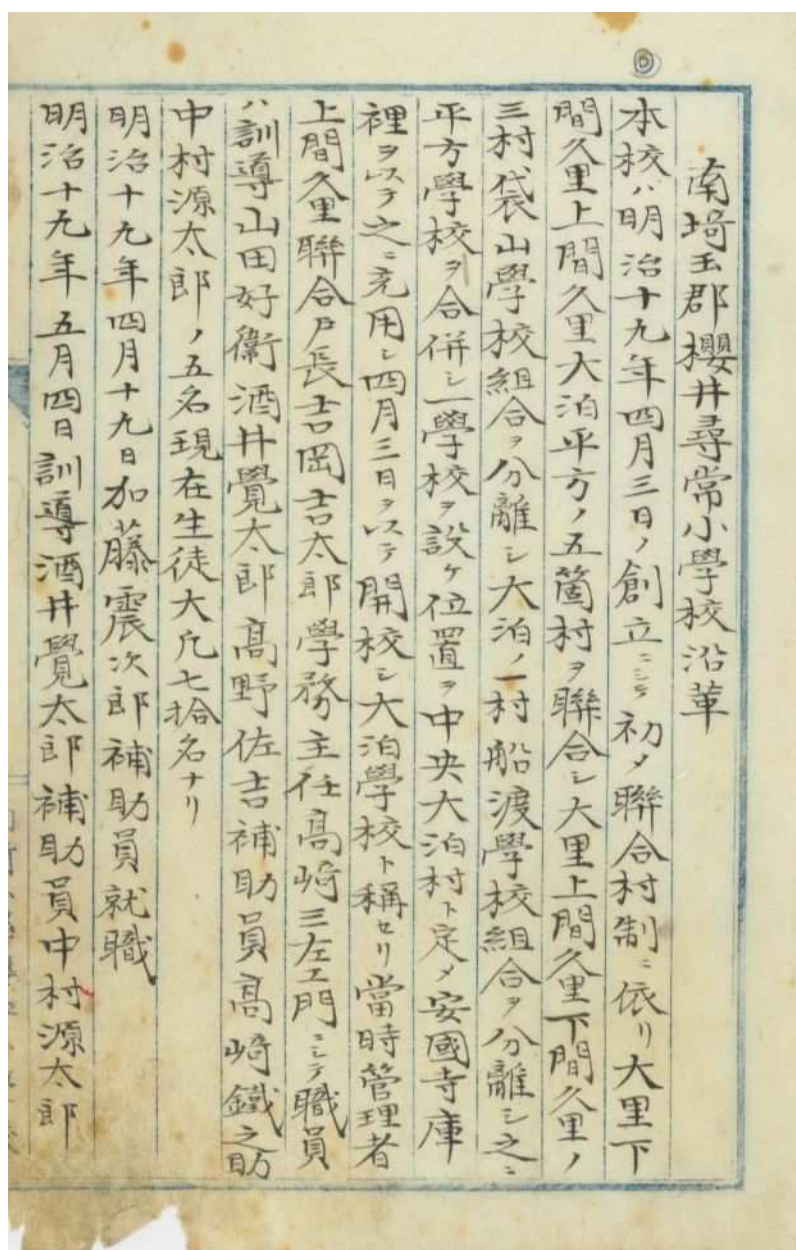 南埼玉郡櫻井尋常小學校沿革
本校ハ明治十九年四月三日ノ創立ニシテ初メ聯合村制ニ依リ大里下
間久里上間久里大泊平方ノ五箇村ヲ聯合シ大里上間久里下間久里ノ
三村袋山學校組合ヲ分離シ大泊ノ一村船渡學校組合ヲ分離シ之ニ
平方學校ヲ合併シ一學校ヲ設ケ位置ヲ中央大泊村ト定メ安國寺庫
裡ヲ以テ之ニ充用シ四月三日ヲ以テ開校シ大泊學校ト稱セリ當時管理者
上間久里聯合戸長吉岡吉太郎學務主任高崎三左エ門ニシテ職員
ハ訓導山田好衞酒井覺太郎高野佐吉補助員高崎鐵之助
中村源太郎ノ五名現在生徒大凡七拾名ナリ
明治十九年四月十九日加藤震次郎補助員就職
明治十九年五月四日訓導酒井覺太郎補助員中村源太郎